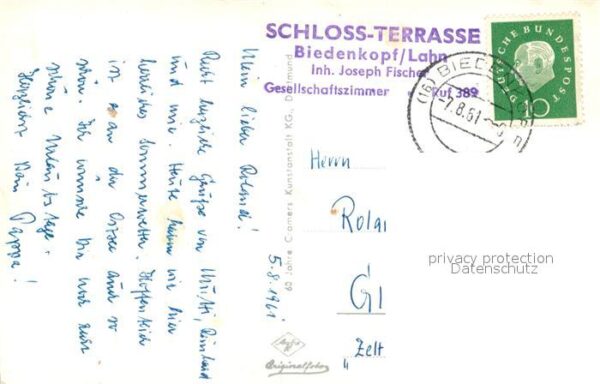 SCHLOSS-TERRASSE
Biedenkopf/Lahn
Inh. Joseph Fischer
Gesellschaftszimmer • Ruf 389
DEUTSCHE BUNDESPOST
10
(16) BIEDEN
-7.8.61
Mein lieber Roland!
Recht herzliche Grüße von Mutti,
und mir. Heute haben wir hier
herrliches Sommerwetter. Hoffentlich
ist es an der Ostsee auch so
schön. Ich wünsche Dir noch
schöne Urlaubstage.
Herzlichst Dein Pappa!
5.8.1961
60 Jahre Cramers Kunstanstalt KG., Dortmund
Herrn
Rolan
Gi
„Zelt
privacy protection
Datenschutz
Agfa
Originalfoto